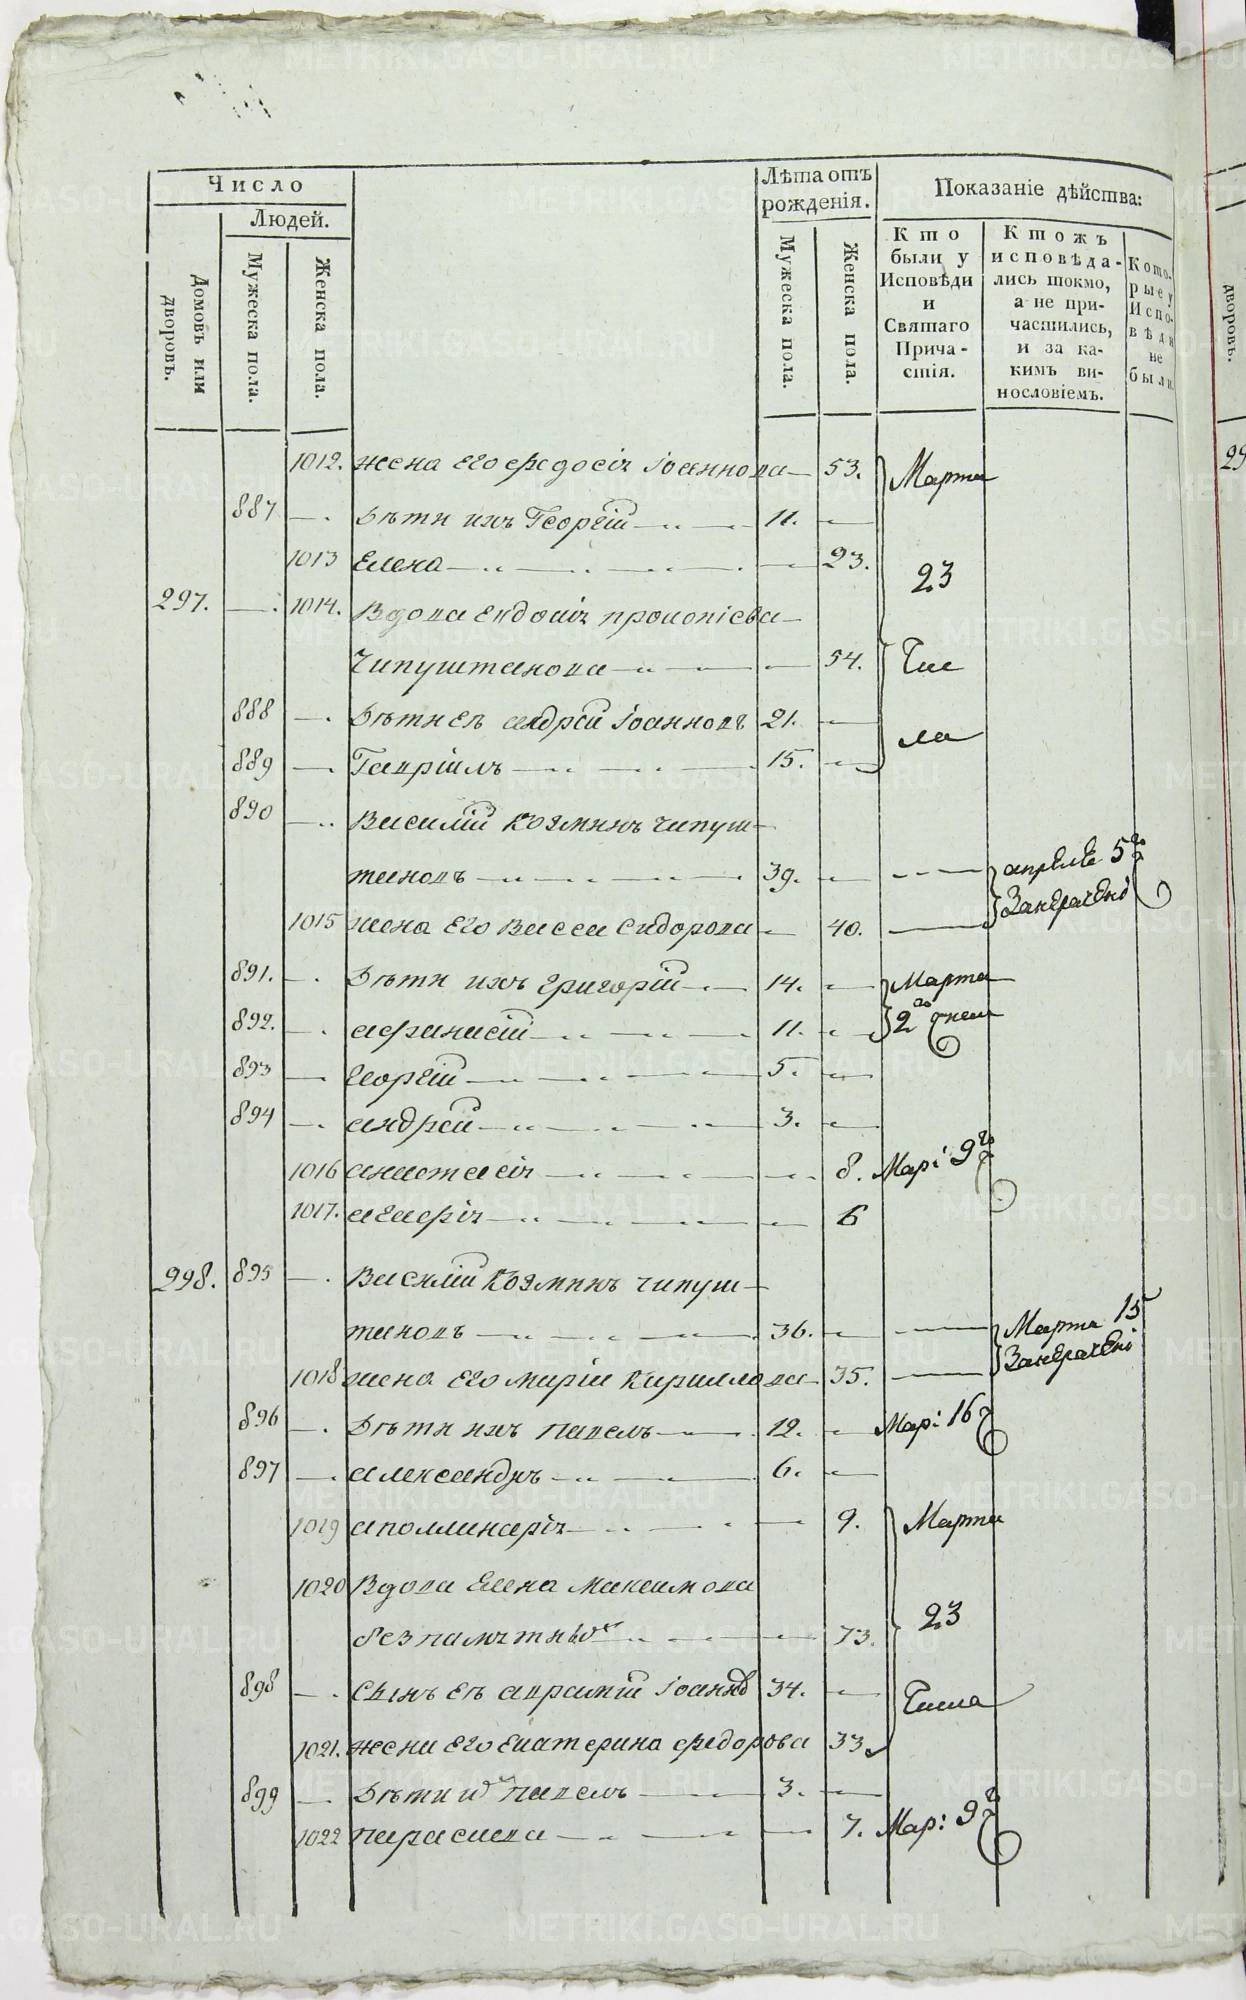 Число
Людей.
Домовъ или дворовъ.
Мужеска пола.
Женска пола.
Лѣта отъ рожденія.
Мужеска пола.
Женска пола.
Показаніе дѣйства:
Кто были у Исповѣди и Святаго Причастія.
Ктожъ исповѣдались токмо, а не причастились, и за какимъ винословіемъ.
Которые у Исповѣди не были.
дворовъ.
1012. жена его Федосія Іоаннова 53. Марта
887 Дѣти ихъ Георгій 11.
1013 Елена 23. 23
297. 1014. Вдова Евдокія Прокопіева
Чипуштанова 54. Чис
888 Дѣти ея Андрей Іоанновъ 21. ла
889 Гавріилъ 15.
890 Василій Козминъ Чипуш-
тановъ 39. апрѣля 5го
1015 жена его Васса Сидорова 40.
891. Дѣти ихъ Григорій 14. Марта
892. Афанасій 11. 2го
893 Георгій 5.
894 Андрей 3.
1016 Анастасія 8. Мар: 9го
1017. Агафія 6
298. 895 Василій Козминъ Чипуш-
тановъ 36. Марта 15
1018 жена его Марія Кириллова 35.
896 Дѣти ихъ Павелъ 12. Мар: 16
897 Александръ 6.
1019 Аполлинарія 9. Марта
1020 Вдова Елена Максимова
73. 23
898 Сынъ ея Аврамій Іоаннов 34. Числа
1021. жена его Екатерина Федорова 33.
899 Дѣти их Павелъ 3.
1022 Параскева 7. Мар: 9го
METRIKI.GASO-URAL.RU